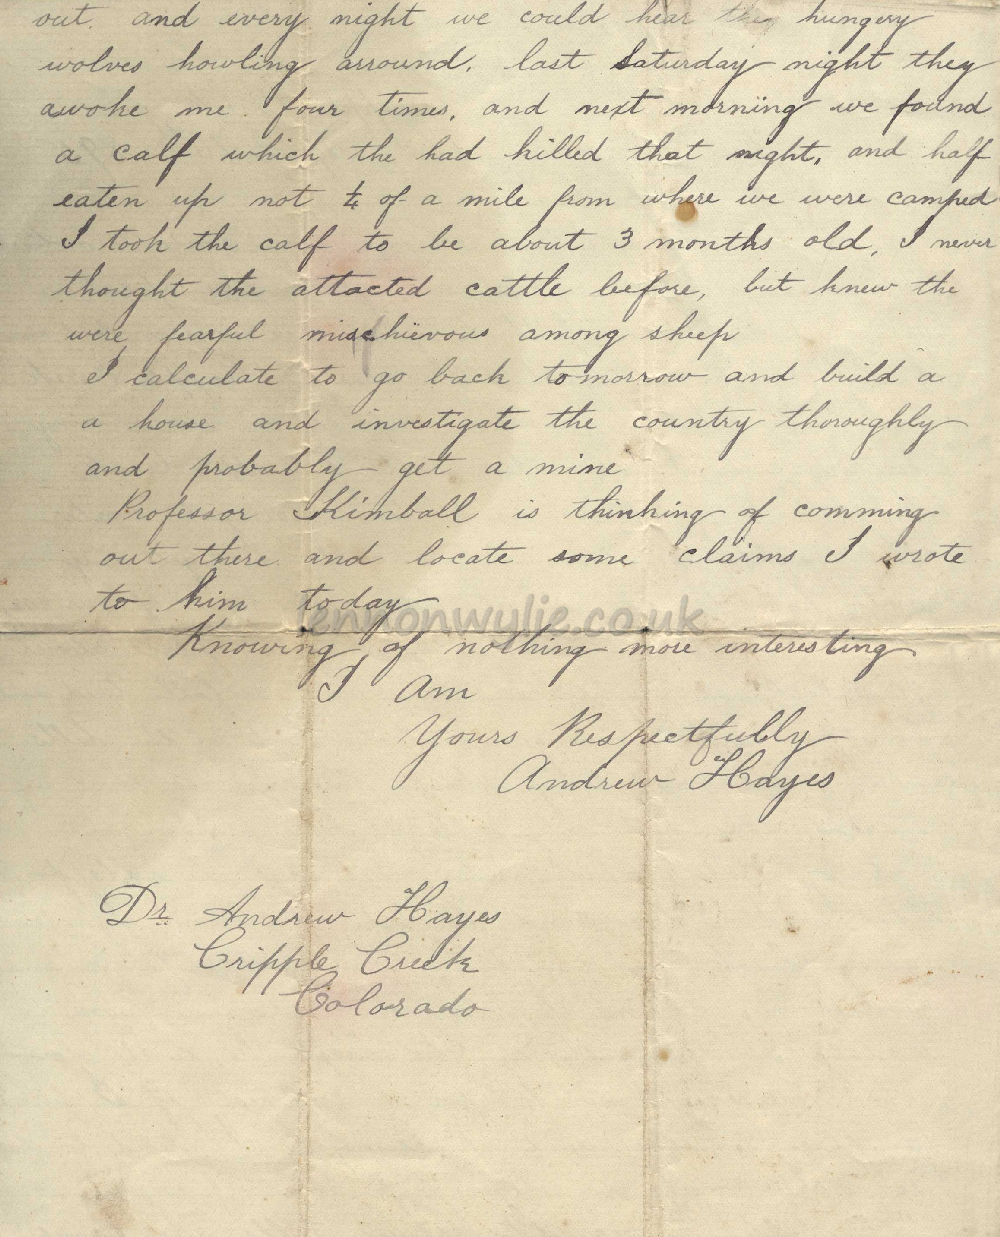 out. and every night we could hear the hungery
wolves howling arround. last Saturday night they
awoke me four times, and next morning we found
a calf which the had killed that night, and half
eaten up not 1/4 of a mile from where we were camped
I took the calf to be about 3 months old, I never
thought the attacted cattle before, but knew the
were fearful mischievous among sheep
I calculate to go back tomorrow and build a
a house and investigate the country thoroughly
and probably get a mine
Professor Kimball is thinking of comming
out there and locate some claims I wrote
to him today
lennonwylie.co.uk
Knowing of nothing more interesting
I Am
Yours Respectfully
Andrew Hayes
Dr. Andrew Hayes
Cripple Creek
Colorado